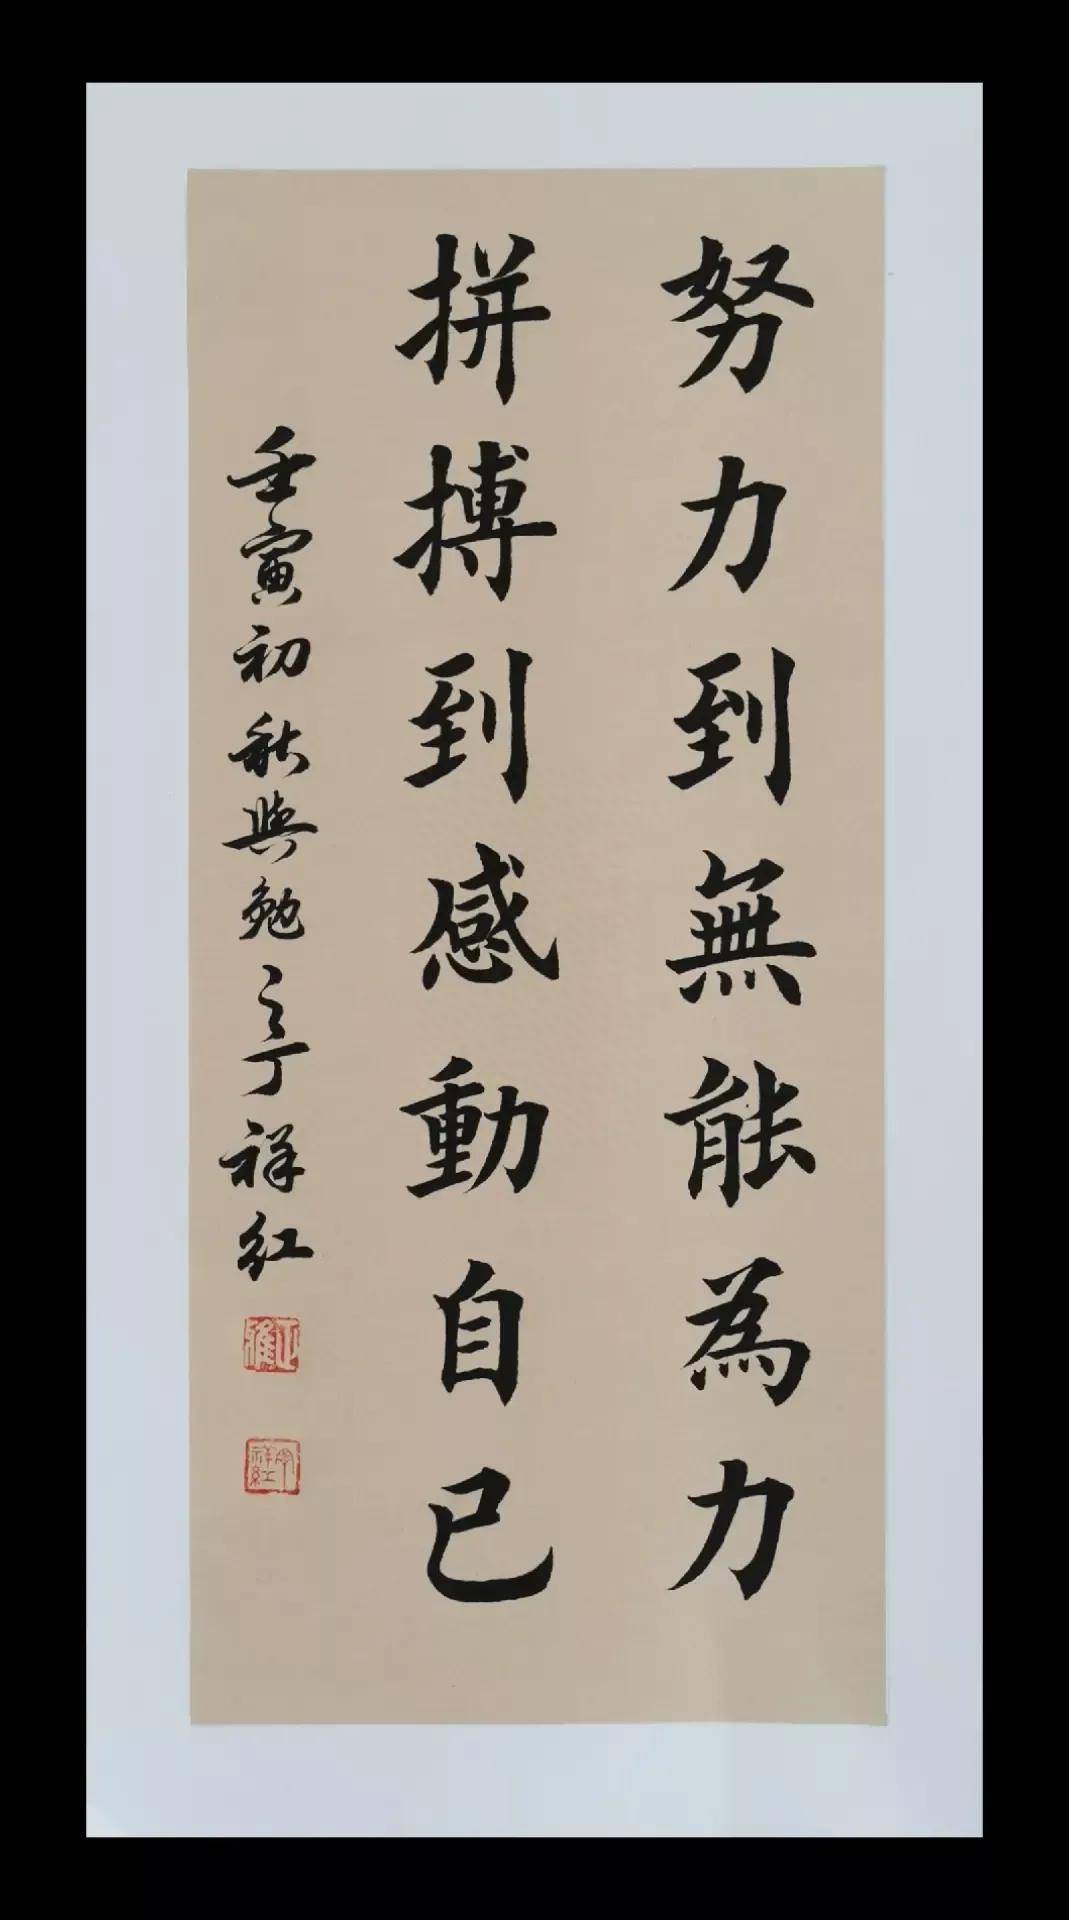 努力到無能為力
拼搏到感動自己
壬寅初秋與勉之丁祥紅